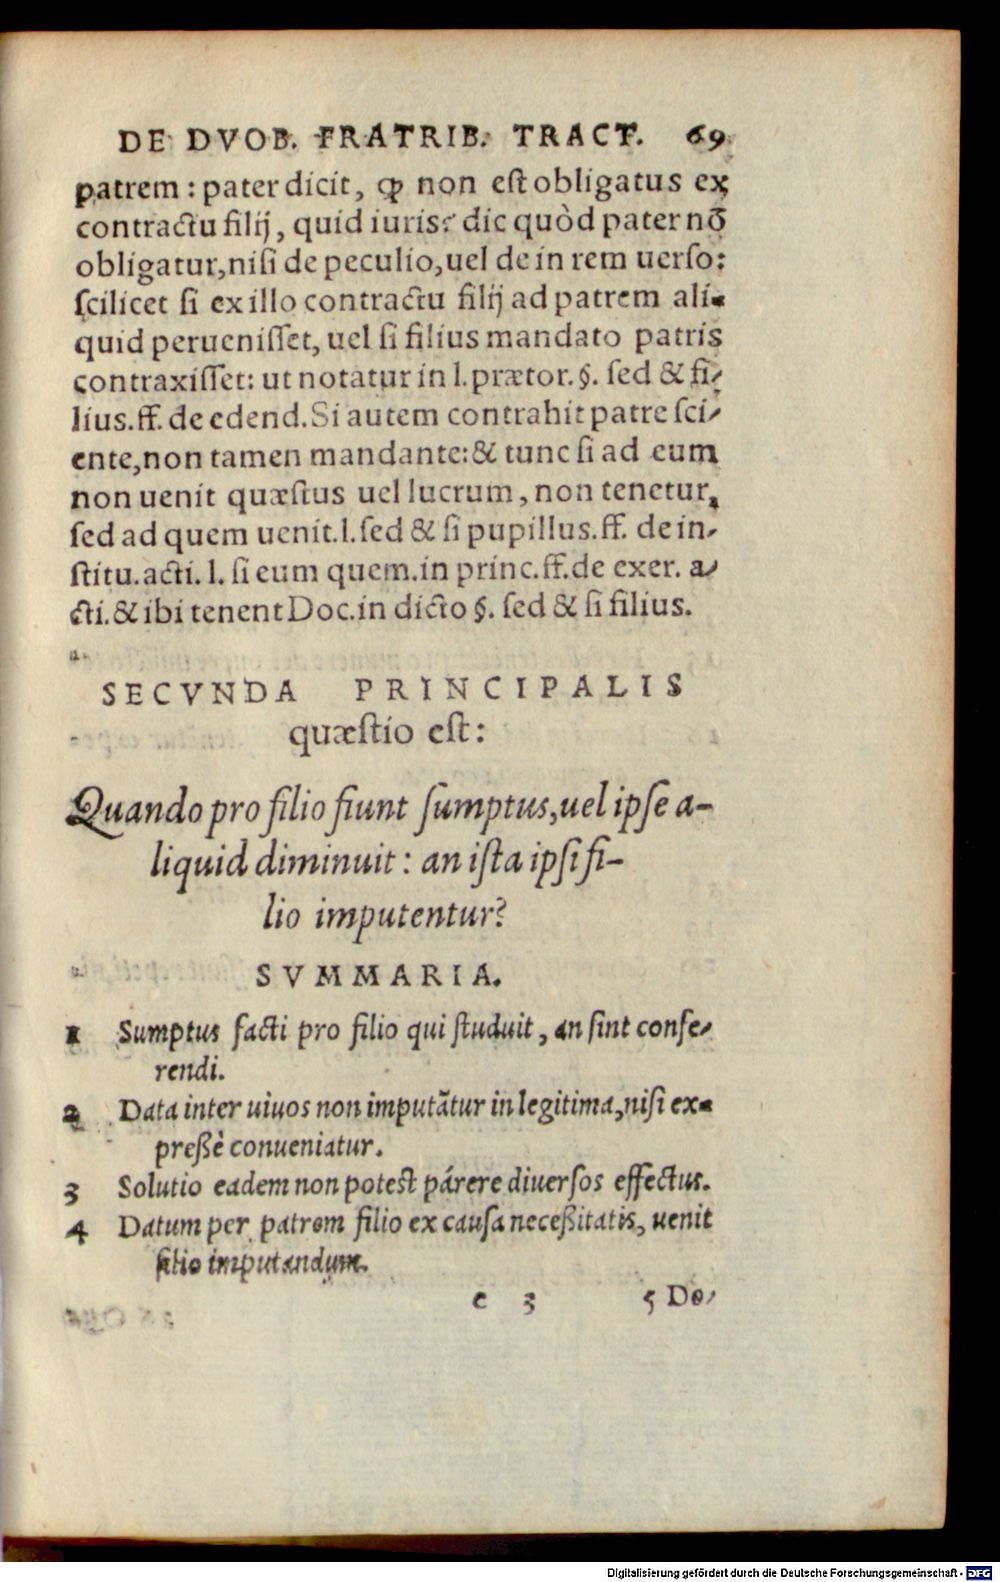 DE DVOB. FRATRIB. TRACT. 69
patrem: pater dicit, ꝙ non est obligatus ex
contractu filij, quid iuris? dic quòd pater nō
obligatur, nisi de peculio, uel de in rem uerso:
scilicet si ex illo contractu filij ad patrem ali-
quid peruenisset, uel si filius mandato patris
contraxisset: ut notatur in l. prætor. §. sed & fi-
lius. ff. de edend. Si autem contrahit patre sci-
ente, non tamen mandante: & tunc si ad eum
non uenit quæstus uel lucrum, non tenetur,
sed ad quem uenit. l. sed & si pupillus. ff. de in-
stitu. acti. l. si eum quem. in princ. ff. de exer. a-
cti. & ibi tenent Doc. in dicto §. sed & si filius.
SECVNDA PRINCIPALIS
quæstio est:
Quando pro filio fiunt sumptus, uel ipse a-
liquid diminuit: an ista ipsi fi-
lio imputentur?
SVMMARIA.
1 Sumptus facti pro filio qui studuit, an sint confe-
rendi.
2 Data inter uiuos non imputātur in legitima, nisi ex-
preßè conueniatur.
3 Solutio eadem non potest párere diuersos effectus.
4 Datum per patrem filio ex causa neceßitatis, uenit
filio imputandum.
e 3 5 De-
Digitalisierung gefördert durch die Deutsche Forschungsgemeinschaft - DFG